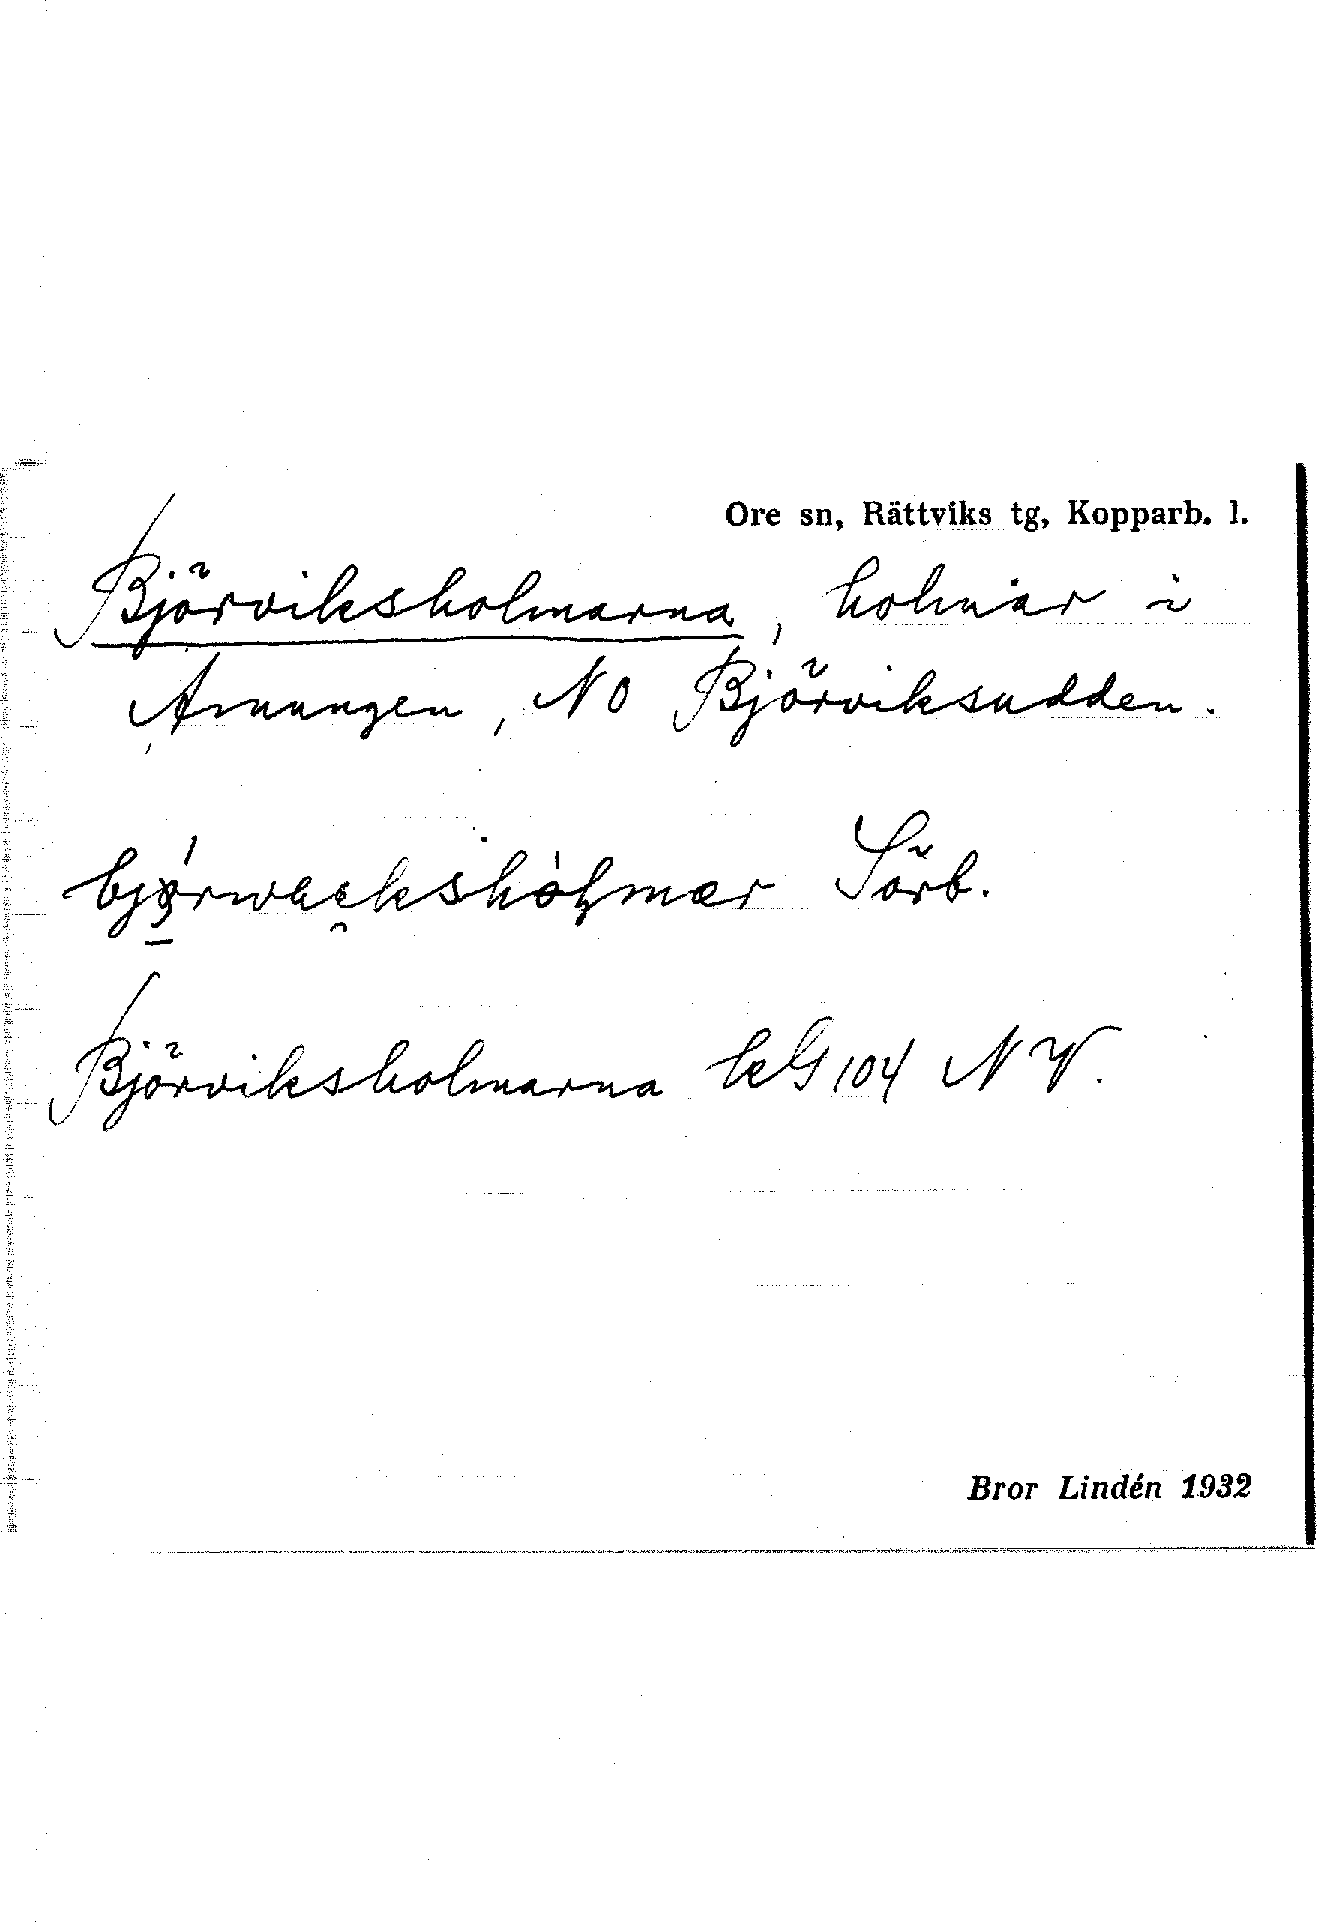 Ore sn, Rättviks tg, Kopparb. l.
Björviksholmarna, holmar i
Amungen, NO Björviksudden.
Sörb.
Björviksholmarna kG 104 NV.
Bror Lindén 1932